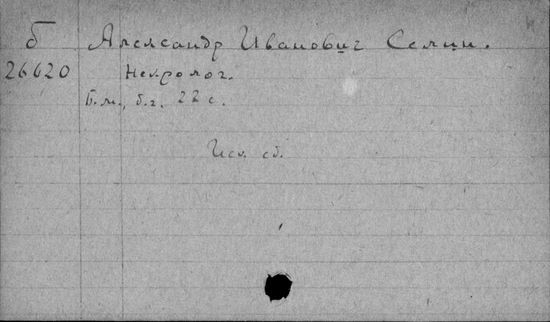 б Александр Иванович Селин.
26620 Некролог.
Б.м., б.г. 22 с.
Исх. сб.